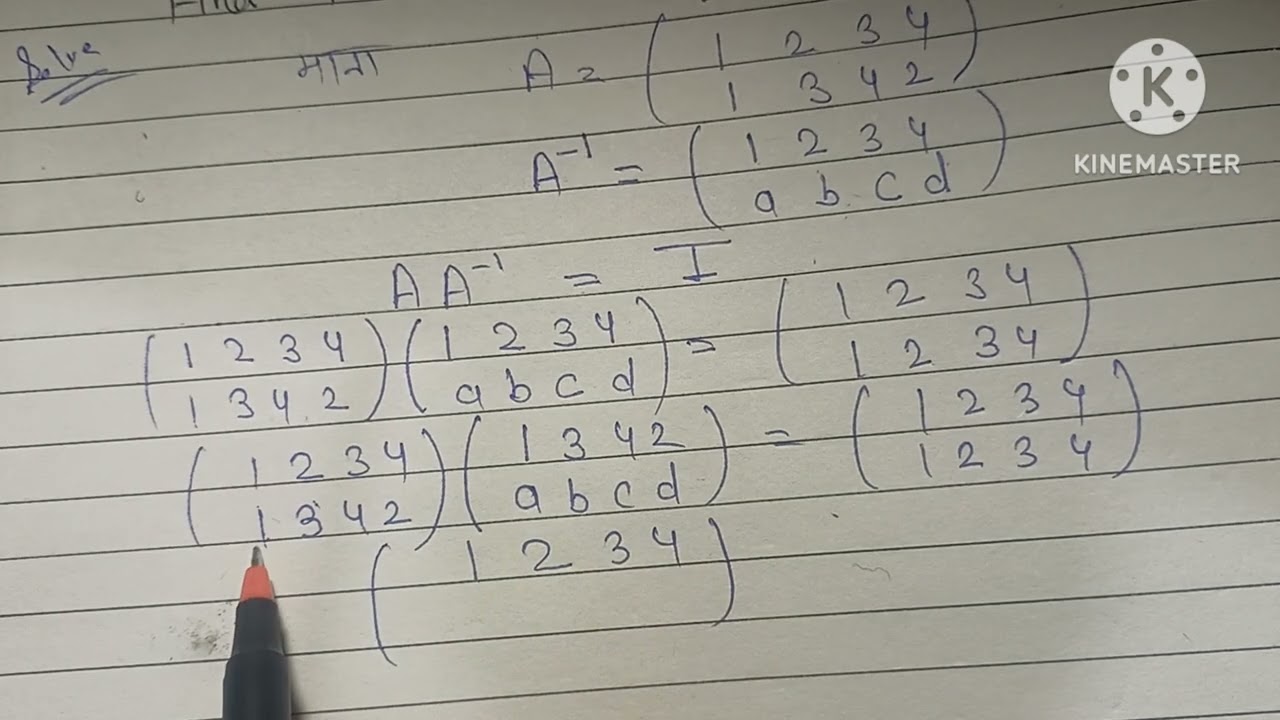 Find
Solve
माना A = ( 1 2 3 4
1 3 4 2 )
A⁻¹ = ( 1 2 3 4
a b c d )
A A⁻¹ = I
( 1 2 3 4 ) ( 1 2 3 4 ) = ( 1 2 3 4 )
( 1 3 4 2 ) ( a b c d ) ( 1 2 3 4 )
( 1 2 3 4 ) ( 1 3 4 2 ) = ( 1 2 3 4 )
( 1 3 4 2 ) ( a b c d ) ( 1 2 3 4 )
( 1 2 3 4 )
K
KINEMASTER